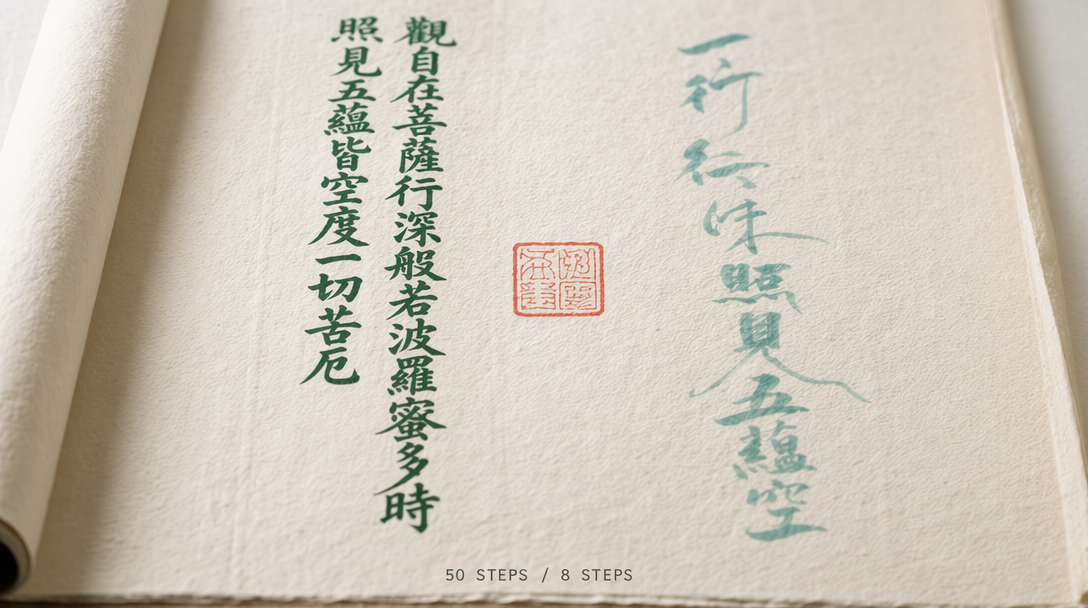 觀自在菩薩行深般若波羅蜜多時
照見五蘊皆空度一切苦厄
一行行味照見五蘊空
50 STEPS / 8 STEPS